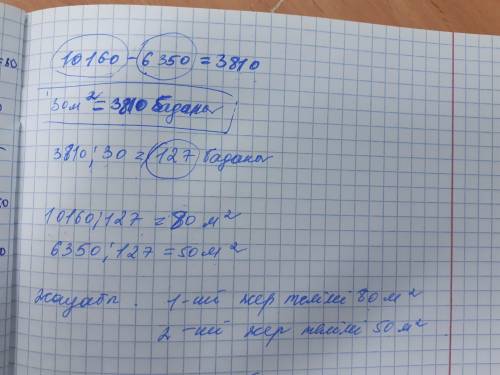 10160 - 6350 = 3810
30м² = 3810 бадана
3810 : 30 = 127 бадана
10160 : 127 = 80 м²
6350 : 127 = 50 м²
жауабы. 1-ші жер телімі 80 м²
2-ші жер телімі 50 м²